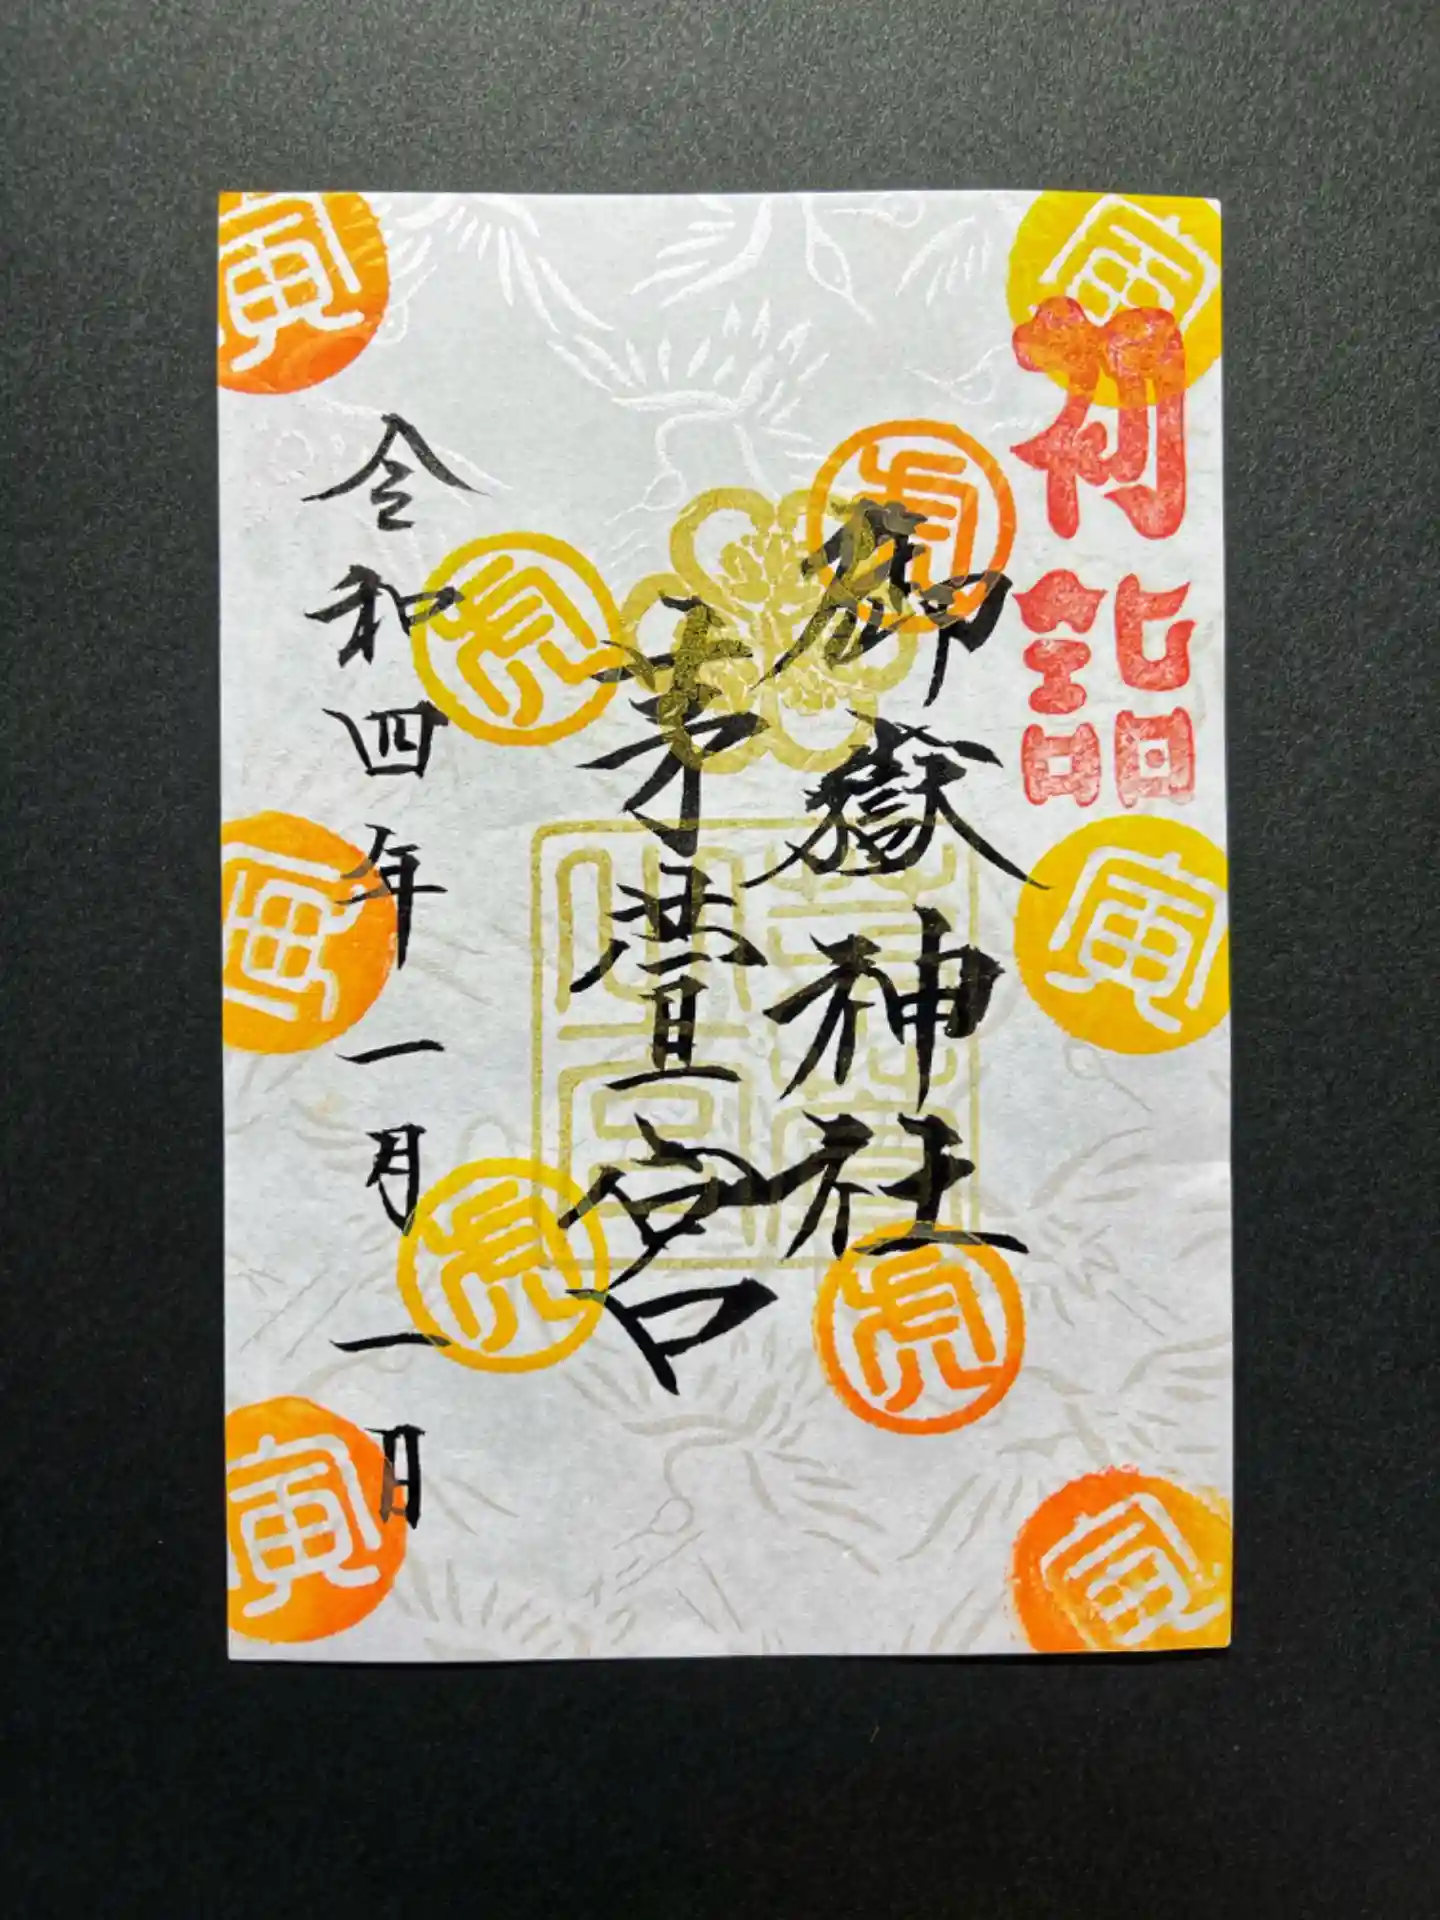 初詣
御嶽神社
茅萱宮
令和四年一月一日
寅
寅
寅
寅
寅
寅
虎
虎
虎
虎